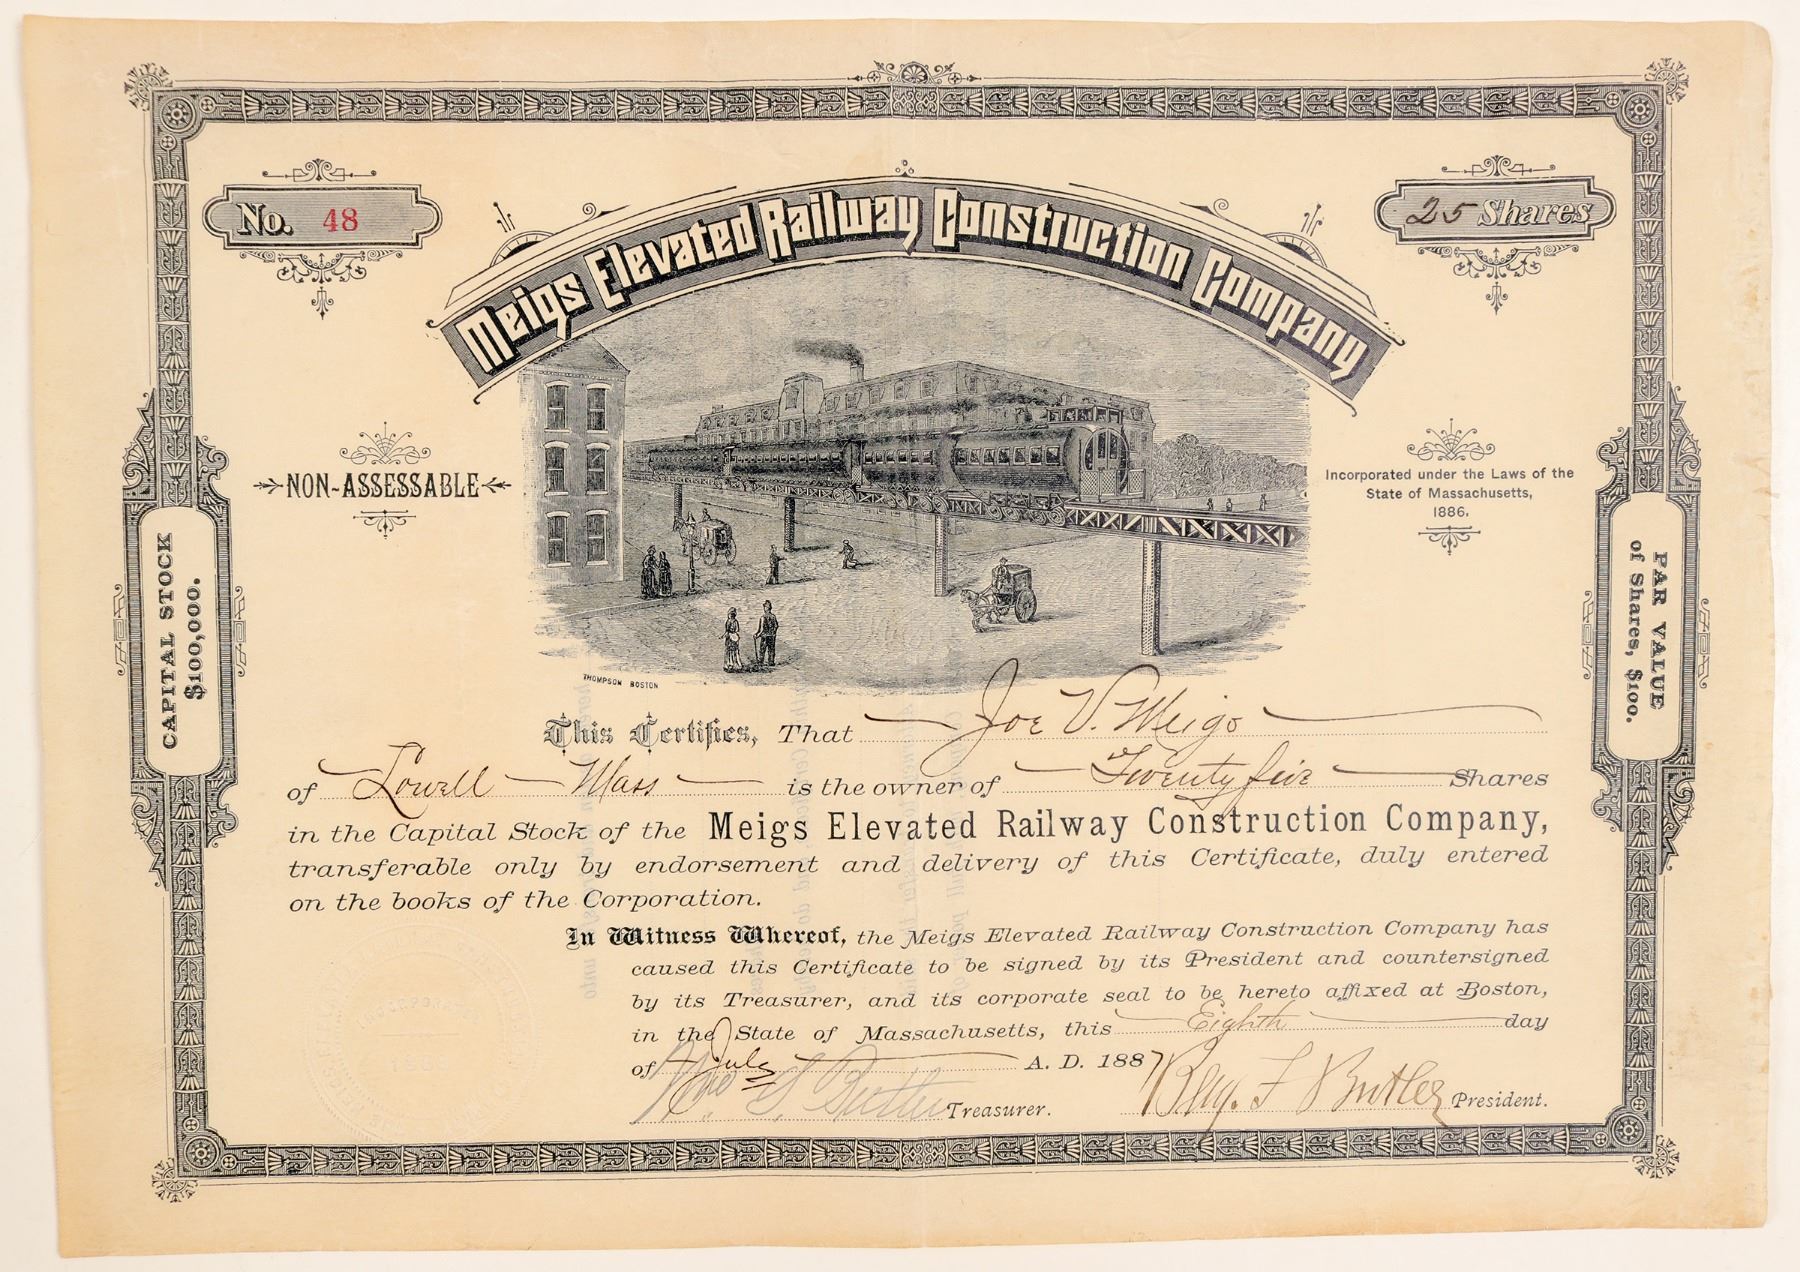 No. 48
25 Shares
Meigs Elevated Railway Construction Company
NON-ASSESSABLE
Incorporated under the Laws of the
State of Massachusetts,
1886.
CAPITAL STOCK
$100,000.
PAR VALUE
of Shares, $100.
THOMPSON BOSTON
This Certifies, That Joe V. Meigs
of Lowell Mass is the owner of Twenty five Shares
in the Capital Stock of the Meigs Elevated Railway Construction Company,
transferable only by endorsement and delivery of this Certificate, duly entered
on the books of the Corporation.
In Witness Whereof, the Meigs Elevated Railway Construction Company has
caused this Certificate to be signed by its President and countersigned
by its Treasurer, and its corporate seal to be hereto affixed at Boston,
in the State of Massachusetts, this Eighth day
of July A. D. 1887
Butler Treasurer. Benj. F Butler President.
INCORPORATED
1886